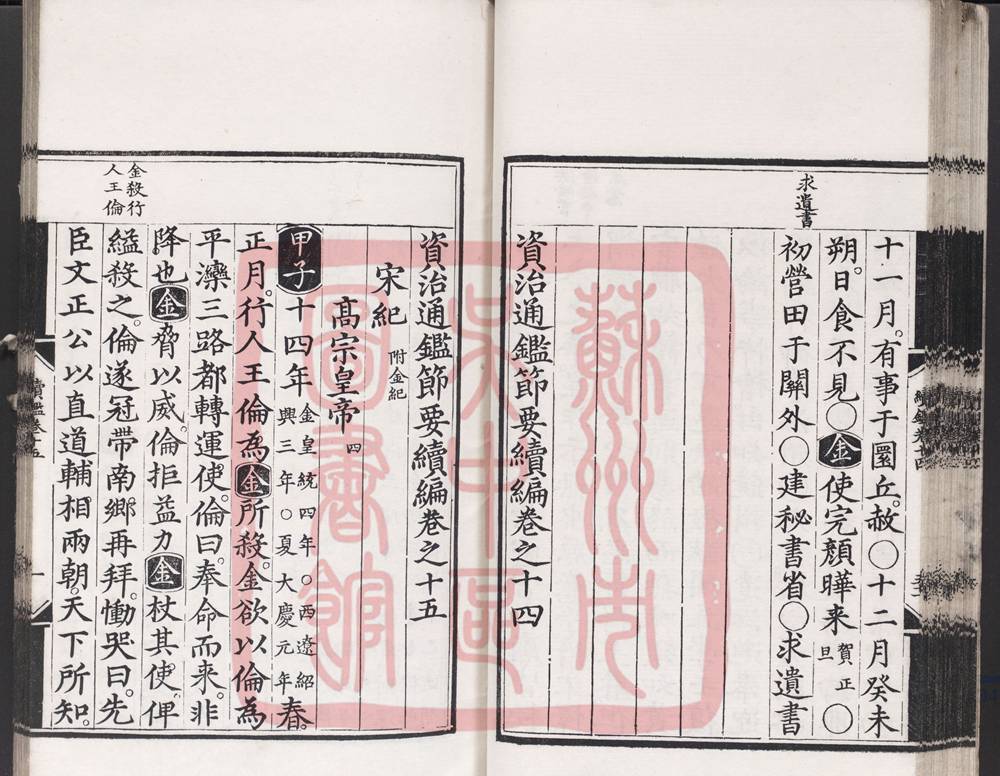 求遺書
十一月。有事于圜丘。赦〇十二月癸未
朔。日食不見〇金使完顏曄来賀正旦〇
初營田于關外〇建秘書省〇求遺書
資治通鑑節要續編卷之十四
資治通鑑節要續編卷之十五
宋紀 附金紀
髙宗皇帝 四
甲子十四年金皇統四年〇西遼紹興三年〇夏大慶元年春。
正月。行人王倫為金所殺。金欲以倫為
平灤三路都轉運使。倫曰。奉命而来。非
降也。金脅以威。倫拒益力金杖其使。俾
縊殺之。倫遂冠帶南鄉。再拜。慟哭曰。先
臣文正公以直道輔相兩朝。天下所知。
金殺行人王倫
續鑑卷十五
一
蘇州市
吴中區
圖書館